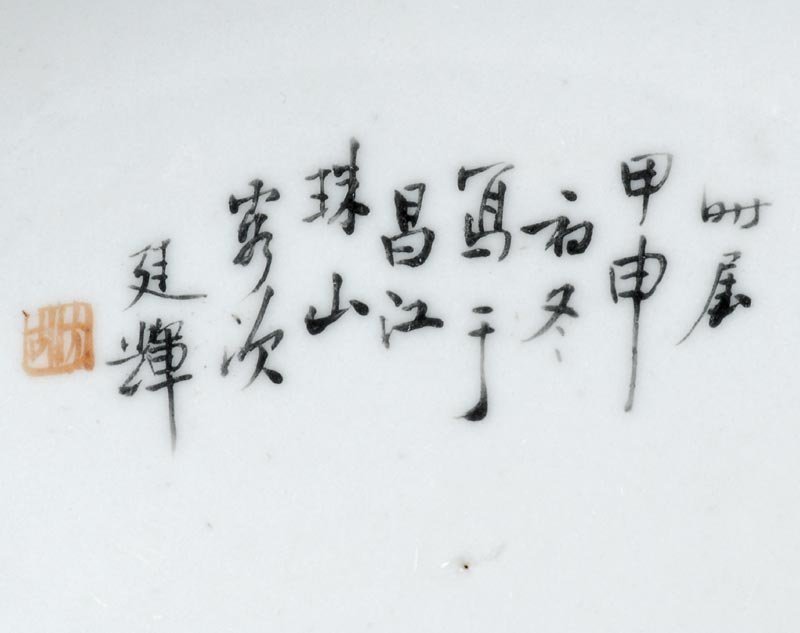 時屆
甲申
初冬
寫于
昌江
珠山
客次
廷輝